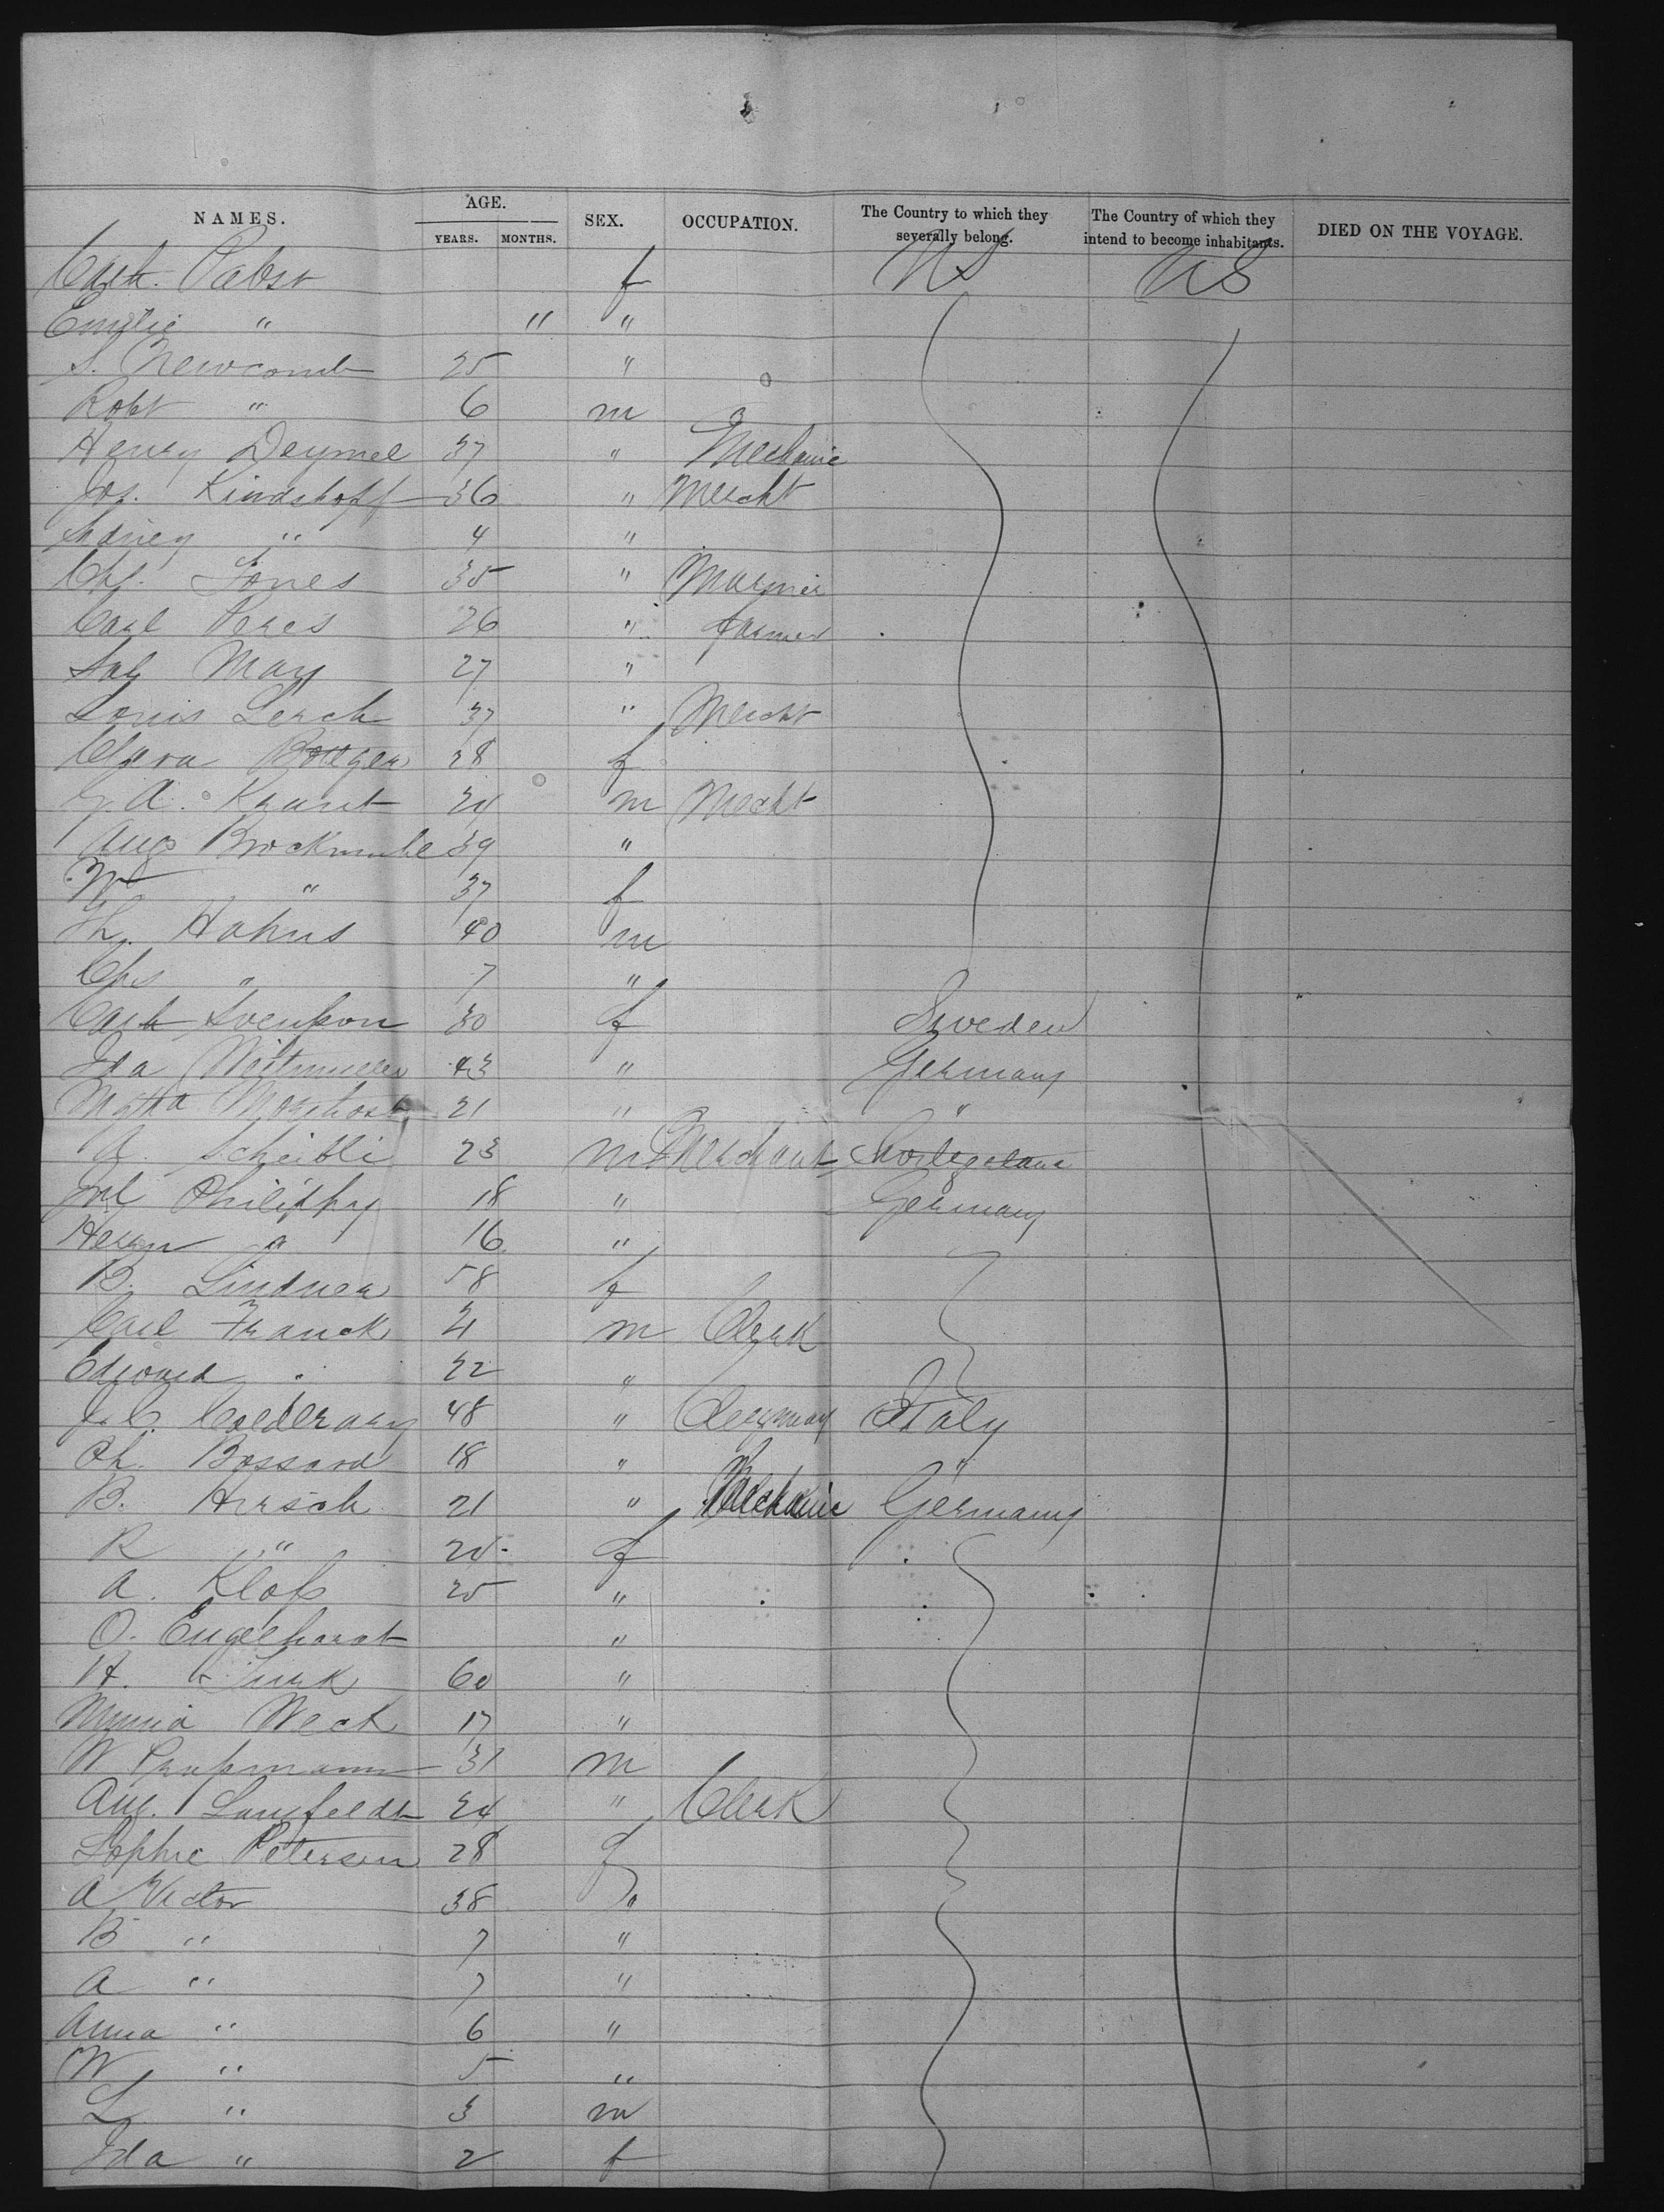 NAMES. AGE. SEX. OCCUPATION. The Country to which they severally belong. The Country of which they intend to become inhabitants. DIED ON THE VOYAGE.
YEARS. MONTHS.
Cath. Pabst f US US
Emilie " " "
S. Newcomb 25 "
Robt " 6 m
Henry Deymel 37 " Mechanic
Jos. Kindshoff 36 " Mercht
Sidney " 4 "
Chs. Jones 35 " Mariner
Carl Peres 26 " farmer
Saly May 27 "
Louis Lerch 37 " Mercht
Clara Bottger 28 f
A. Kraut 24 m Mercht
Aug Brockmuhle 39 "
" 37 f
Th. Hahns 40 m
Chs " 7 "
Cath Svenson 30 f Sweden
Ida Weitmuller 43 " Germany
Mgtha 21 " "
A. Scheibli 23 m Merchant
Jul Philippy 18 " Germany
Herm " 16 "
B. Lindner 58 f
Carl Franck 21 m Clerk
Edward " 22 "
48 " Clergman Italy
Ch. Bossard 18 " "
B. Hirsch 21 " Mechanic Germany
R " 20 f
A. Kloß 25 "
O. Engelhardt "
H. Turk 60 "
Minnia Weck 17 "
W 31 m
Aug. Langfeldt 24 " Clerk
Sophie Petersen 28 f
A Victor 38 "
B " 7 "
A " 7 "
Anna " 6 "
W " 5 "
L " 3 m
Ida " 2 f